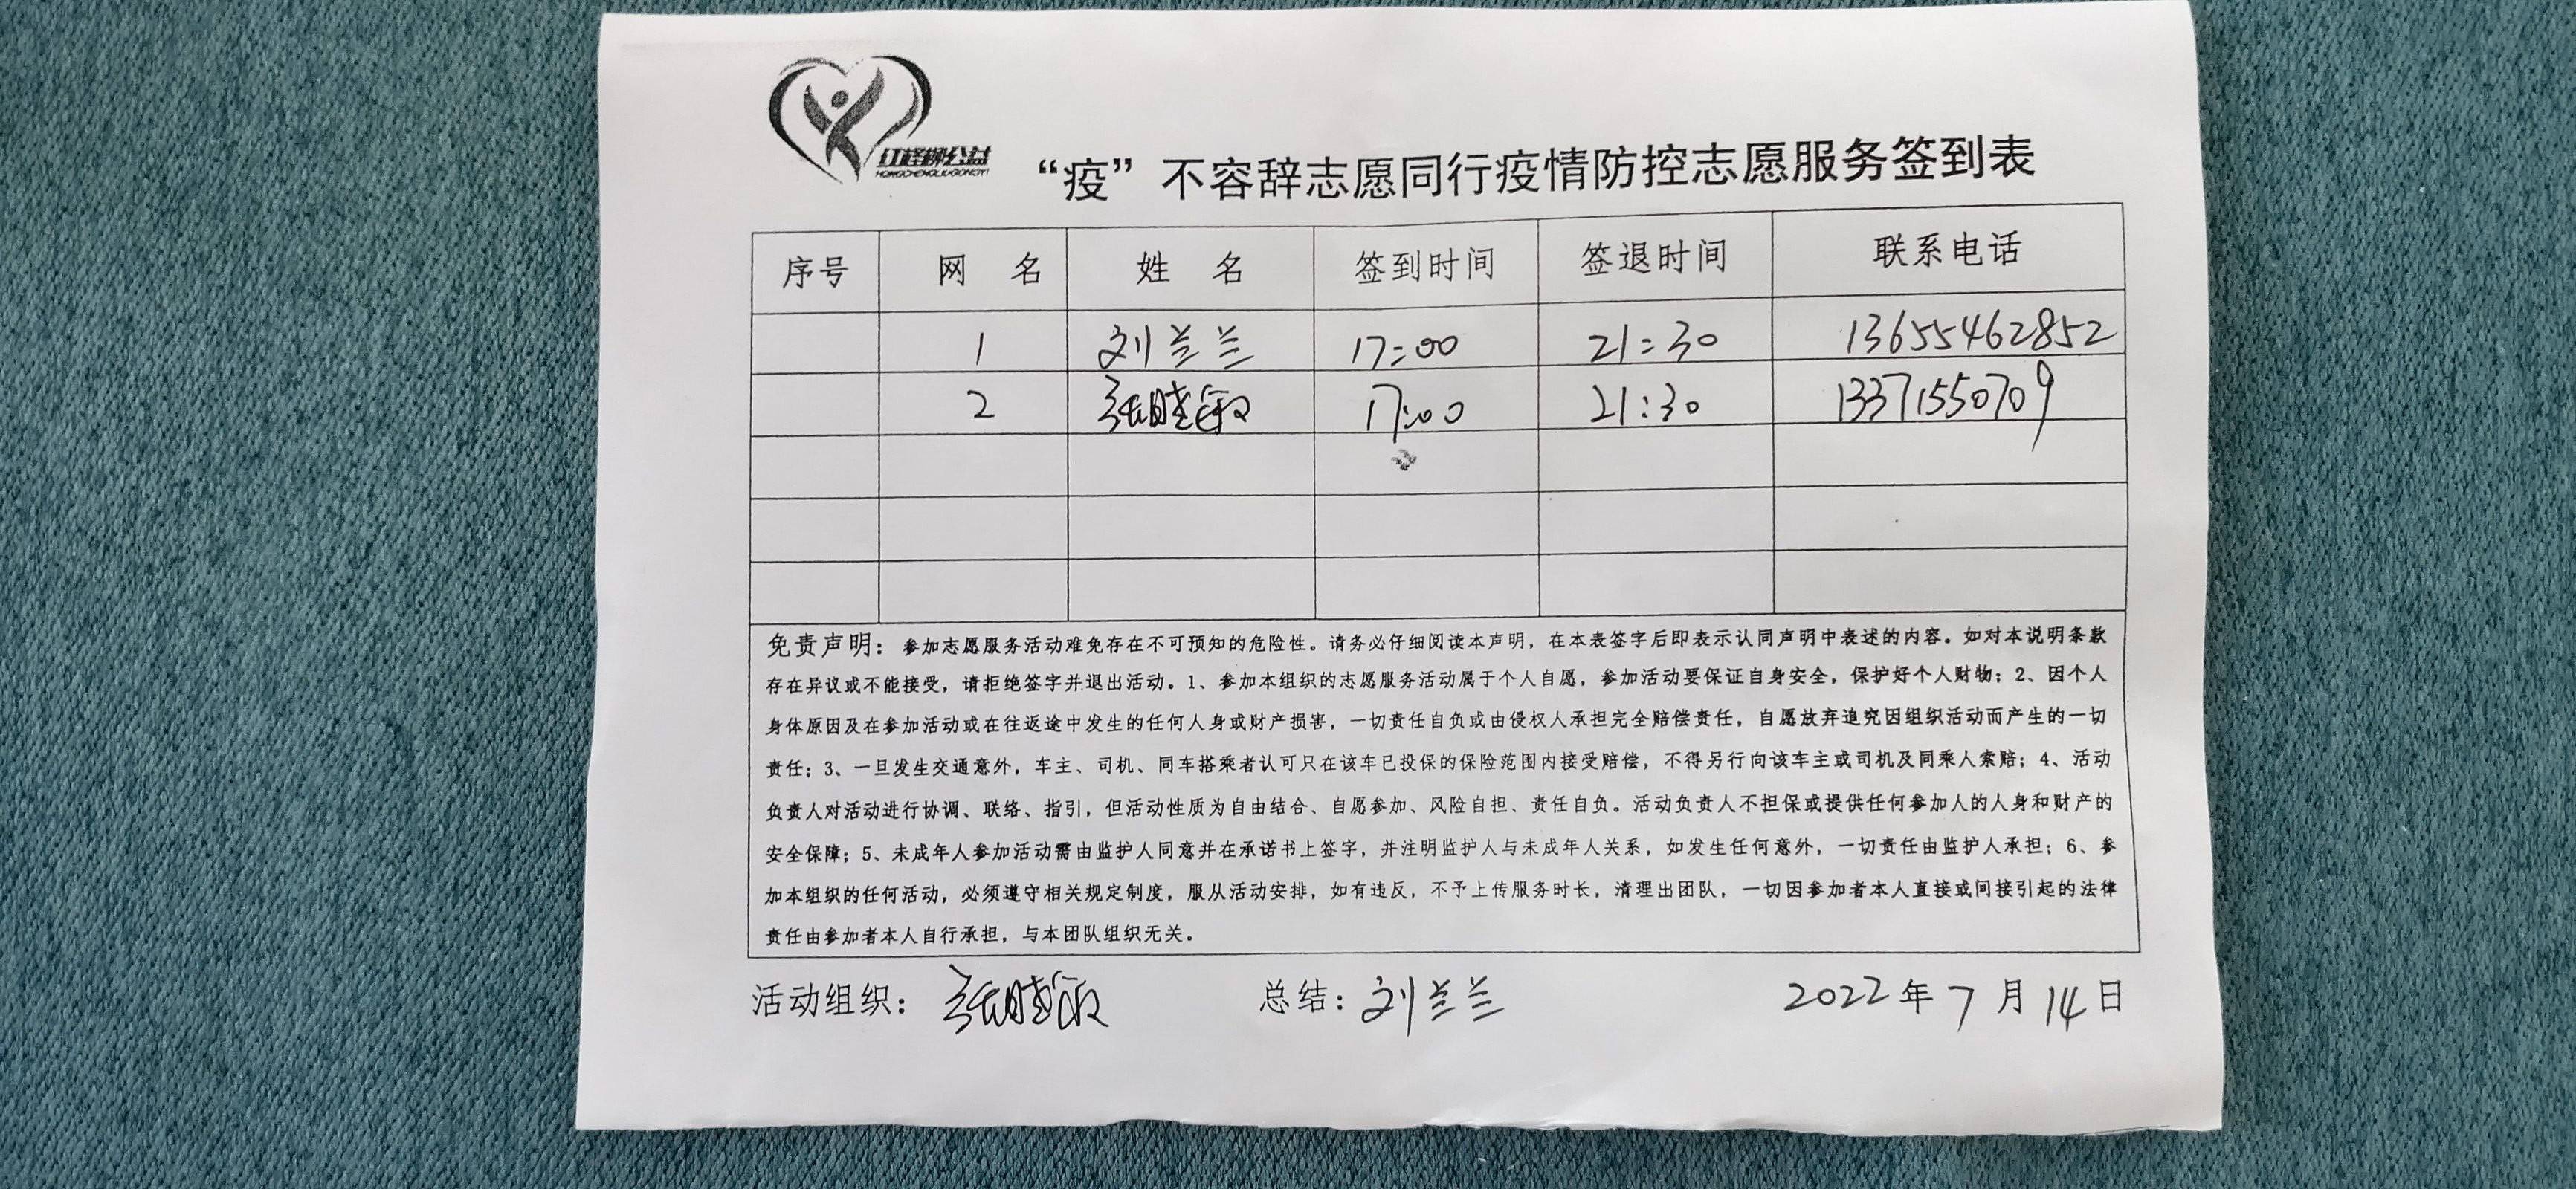 红柽柳公益
HONGCHENGLIUGONGYI
“疫”不容辞志愿同行疫情防控志愿服务签到表
序号 网 名 姓 名 签到时间 签退时间 联系电话
1 刘兰兰 17:00 21:30 13655462852
2 张晓敏 17:00 21:30 13371550709
免责声明：参加志愿服务活动难免存在不可预知的危险性。请务必仔细阅读本声明，在本表签字后即表示认同声明中表述的内容。如对本说明条款
存在异议或不能接受，请拒绝签字并退出活动。1、参加本组织的志愿服务活动属于个人自愿，参加活动要保证自身安全，保护好个人财物；2、因个人
身体原因及在参加活动或在往返途中发生的任何人身或财产损害，一切责任自负或由侵权人承担完全赔偿责任，自愿放弃追究因组织活动而产生的一切
责任；3、一旦发生交通意外，车主、司机、同车搭乘者认可只在该车已投保的保险范围内接受赔偿，不得另行向该车主或司机及同乘人索赔；4、活动
负责人对活动进行协调、联络、指引，但活动性质为自由结合、自愿参加、风险自担、责任自负。活动负责人不担保或提供任何参加人的人身和财产的
安全保障；5、未成年人参加活动需由监护人同意并在承诺书上签字，并注明监护人与未成年人关系，如发生任何意外，一切责任由监护人承担；6、参
加本组织的任何活动，必须遵守相关规定制度，服从活动安排，如有违反，不予上传服务时长，清理出团队，一切因参加者本人直接或间接引起的法律
责任由参加者本人自行承担，与本团队组织无关。
活动组织：张晓敏 总结：刘兰兰 2022年7月14日